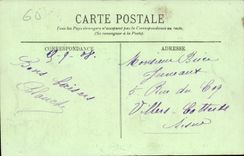 60
CARTE POSTALE
Tous les Pays étrangers n'acceptent pas la Correspondance au recto.
(Se renseigner à la Poste).
CORRESPONDANCE
ADRESSE
9-08
Bons baisers
Monsieur
5 Rue du Coq
Villers-Cotterets
Aisne